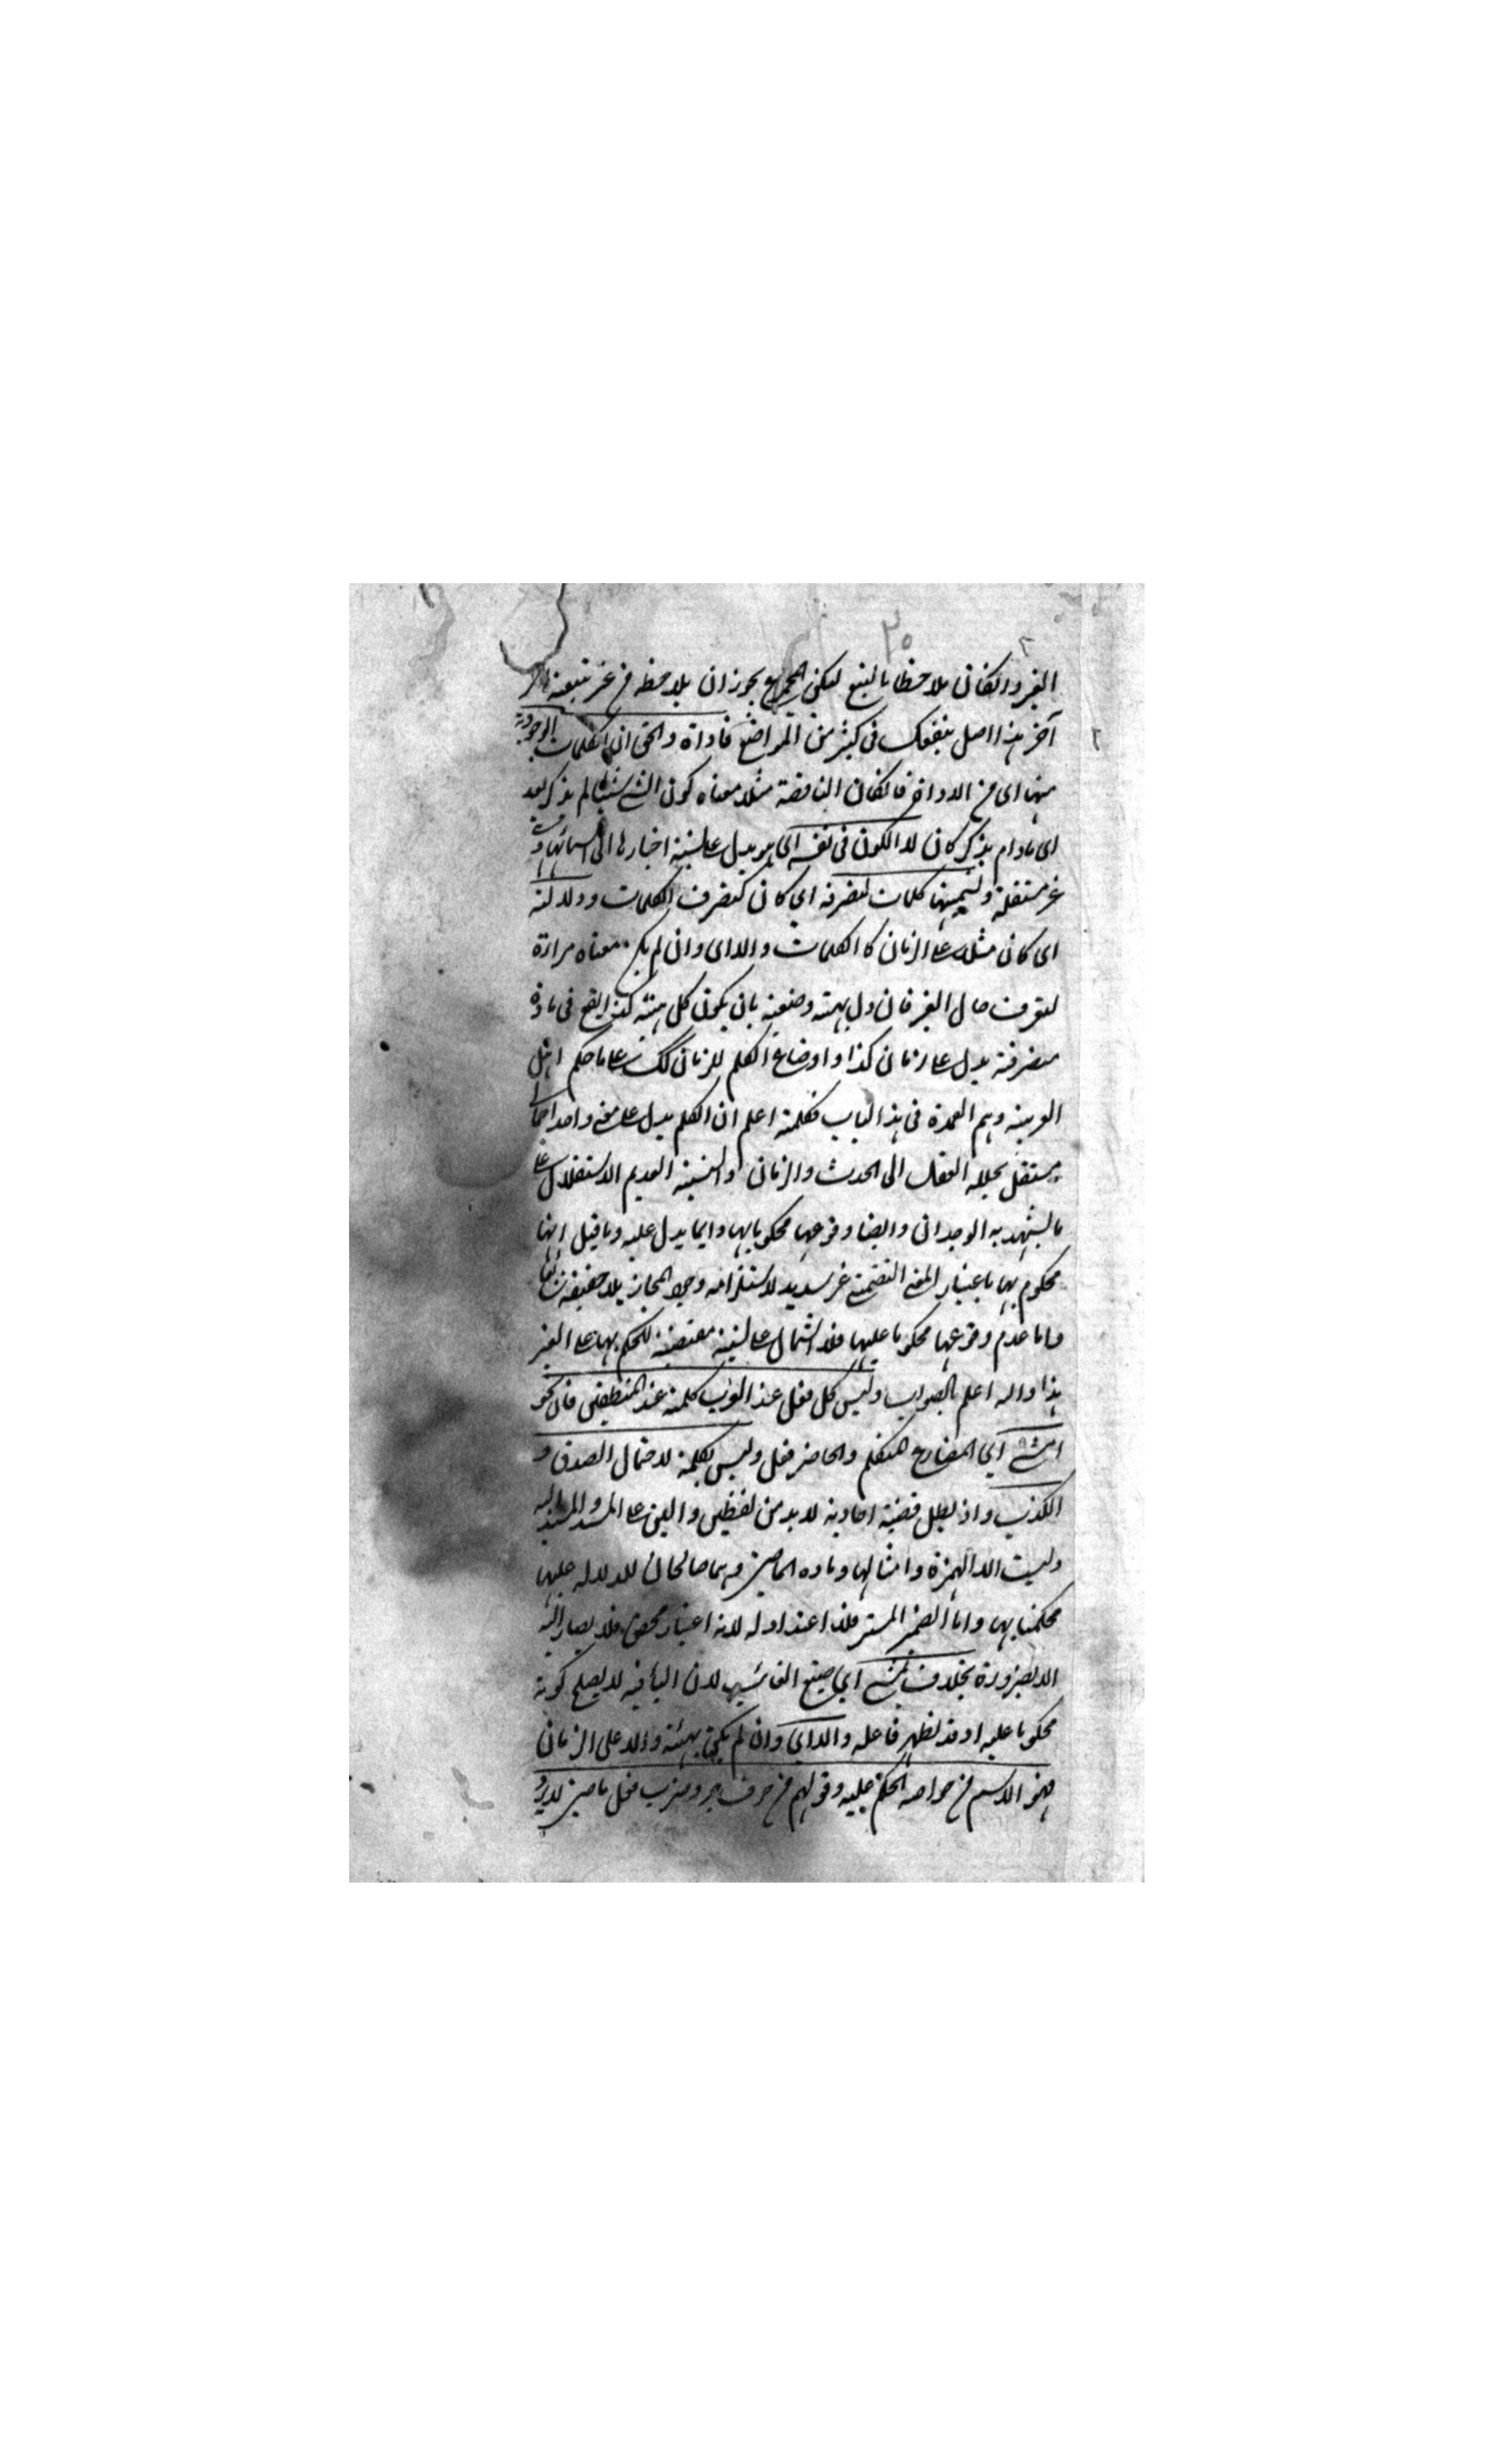 ٢٥
الغير وان كان ملاحظا بالتبع لكن المجموع يجوز ان يلاحظ من غير تبعية امر
آخر هذا اصل ينفعك في كثير من المواضع فاداة والحق ان الكلمات الوجودية
منها اى من الادوات فان كان الناقصة مثلا معناه كون الشئ شيئا لم يذكر بعد
اى مادام يذكر كان لا الكون في نفسه اى هو يدل على نسبة اخبارها الى اسمائها وهى
غير مستقلة وتسميتها كلمات لتصرفه اى كان كتصرف الكلمات ودلالته
اى كان مثلا على الزمان كالكلمات والا اى وان لم يكن معناه مرآة
لتعرف حال الغير فان دل بهيئته وضعية بان يكون كل هيئة كذا يقع في مادة
متصرفة يدل على زمان كذا واوضاع الكلم للزمان كك على ما حكم اهل
العربية وهم العمدة في هذا الباب فكلمة اعلم ان الكلم يدل على معنى واحد اجمالى
مستقل يحلله العقل الى الحدث والزمان والنسبة العديم الاستقلال على
ما يشهد به الوجدان وايضا وقوعها محكوما بها دائما يدل عليه وما قيل انها
محكوم بها باعتبار المعنى التضمنى غير سديد لاستلزامه وجود المجاز بلا حقيقة شائعا
واما عدم وقوعها محكوما عليها فلاشتمال على نسبة مقتضية للحكم بها على الغير
هذا والله اعلم بالصواب وليس كل فعل عند العرب كلمة عند المنطقيين فان نحو
امشى اى المضارع المتكلم والحاضر فعل وليس بكلمة لاحتمال الصدق و
الكذب واذ لكل قضية احادية لا بد من لفظين دالين على المسند والمسند اليه
وليست الا الهمزة وامثالها ومادة الماضى وهما صالحان للدلالة عليهما
حكمنا بها واما الضمير المستتر فلا اعتداد له لانه اعتبار محض فلا يصار اليه
الا بضرورة بخلاف يمشى اى صيغ الغائب لان الياء فيه لا يصلح كونه
محكوما عليه او قد يظهر فاعله والا اى وان لم يكن بهيئة دالا على الزمان
فهو الاسم من خواصه الحكم عليه وقولهم من حرف جر وضرب فعل ماض لا يرد